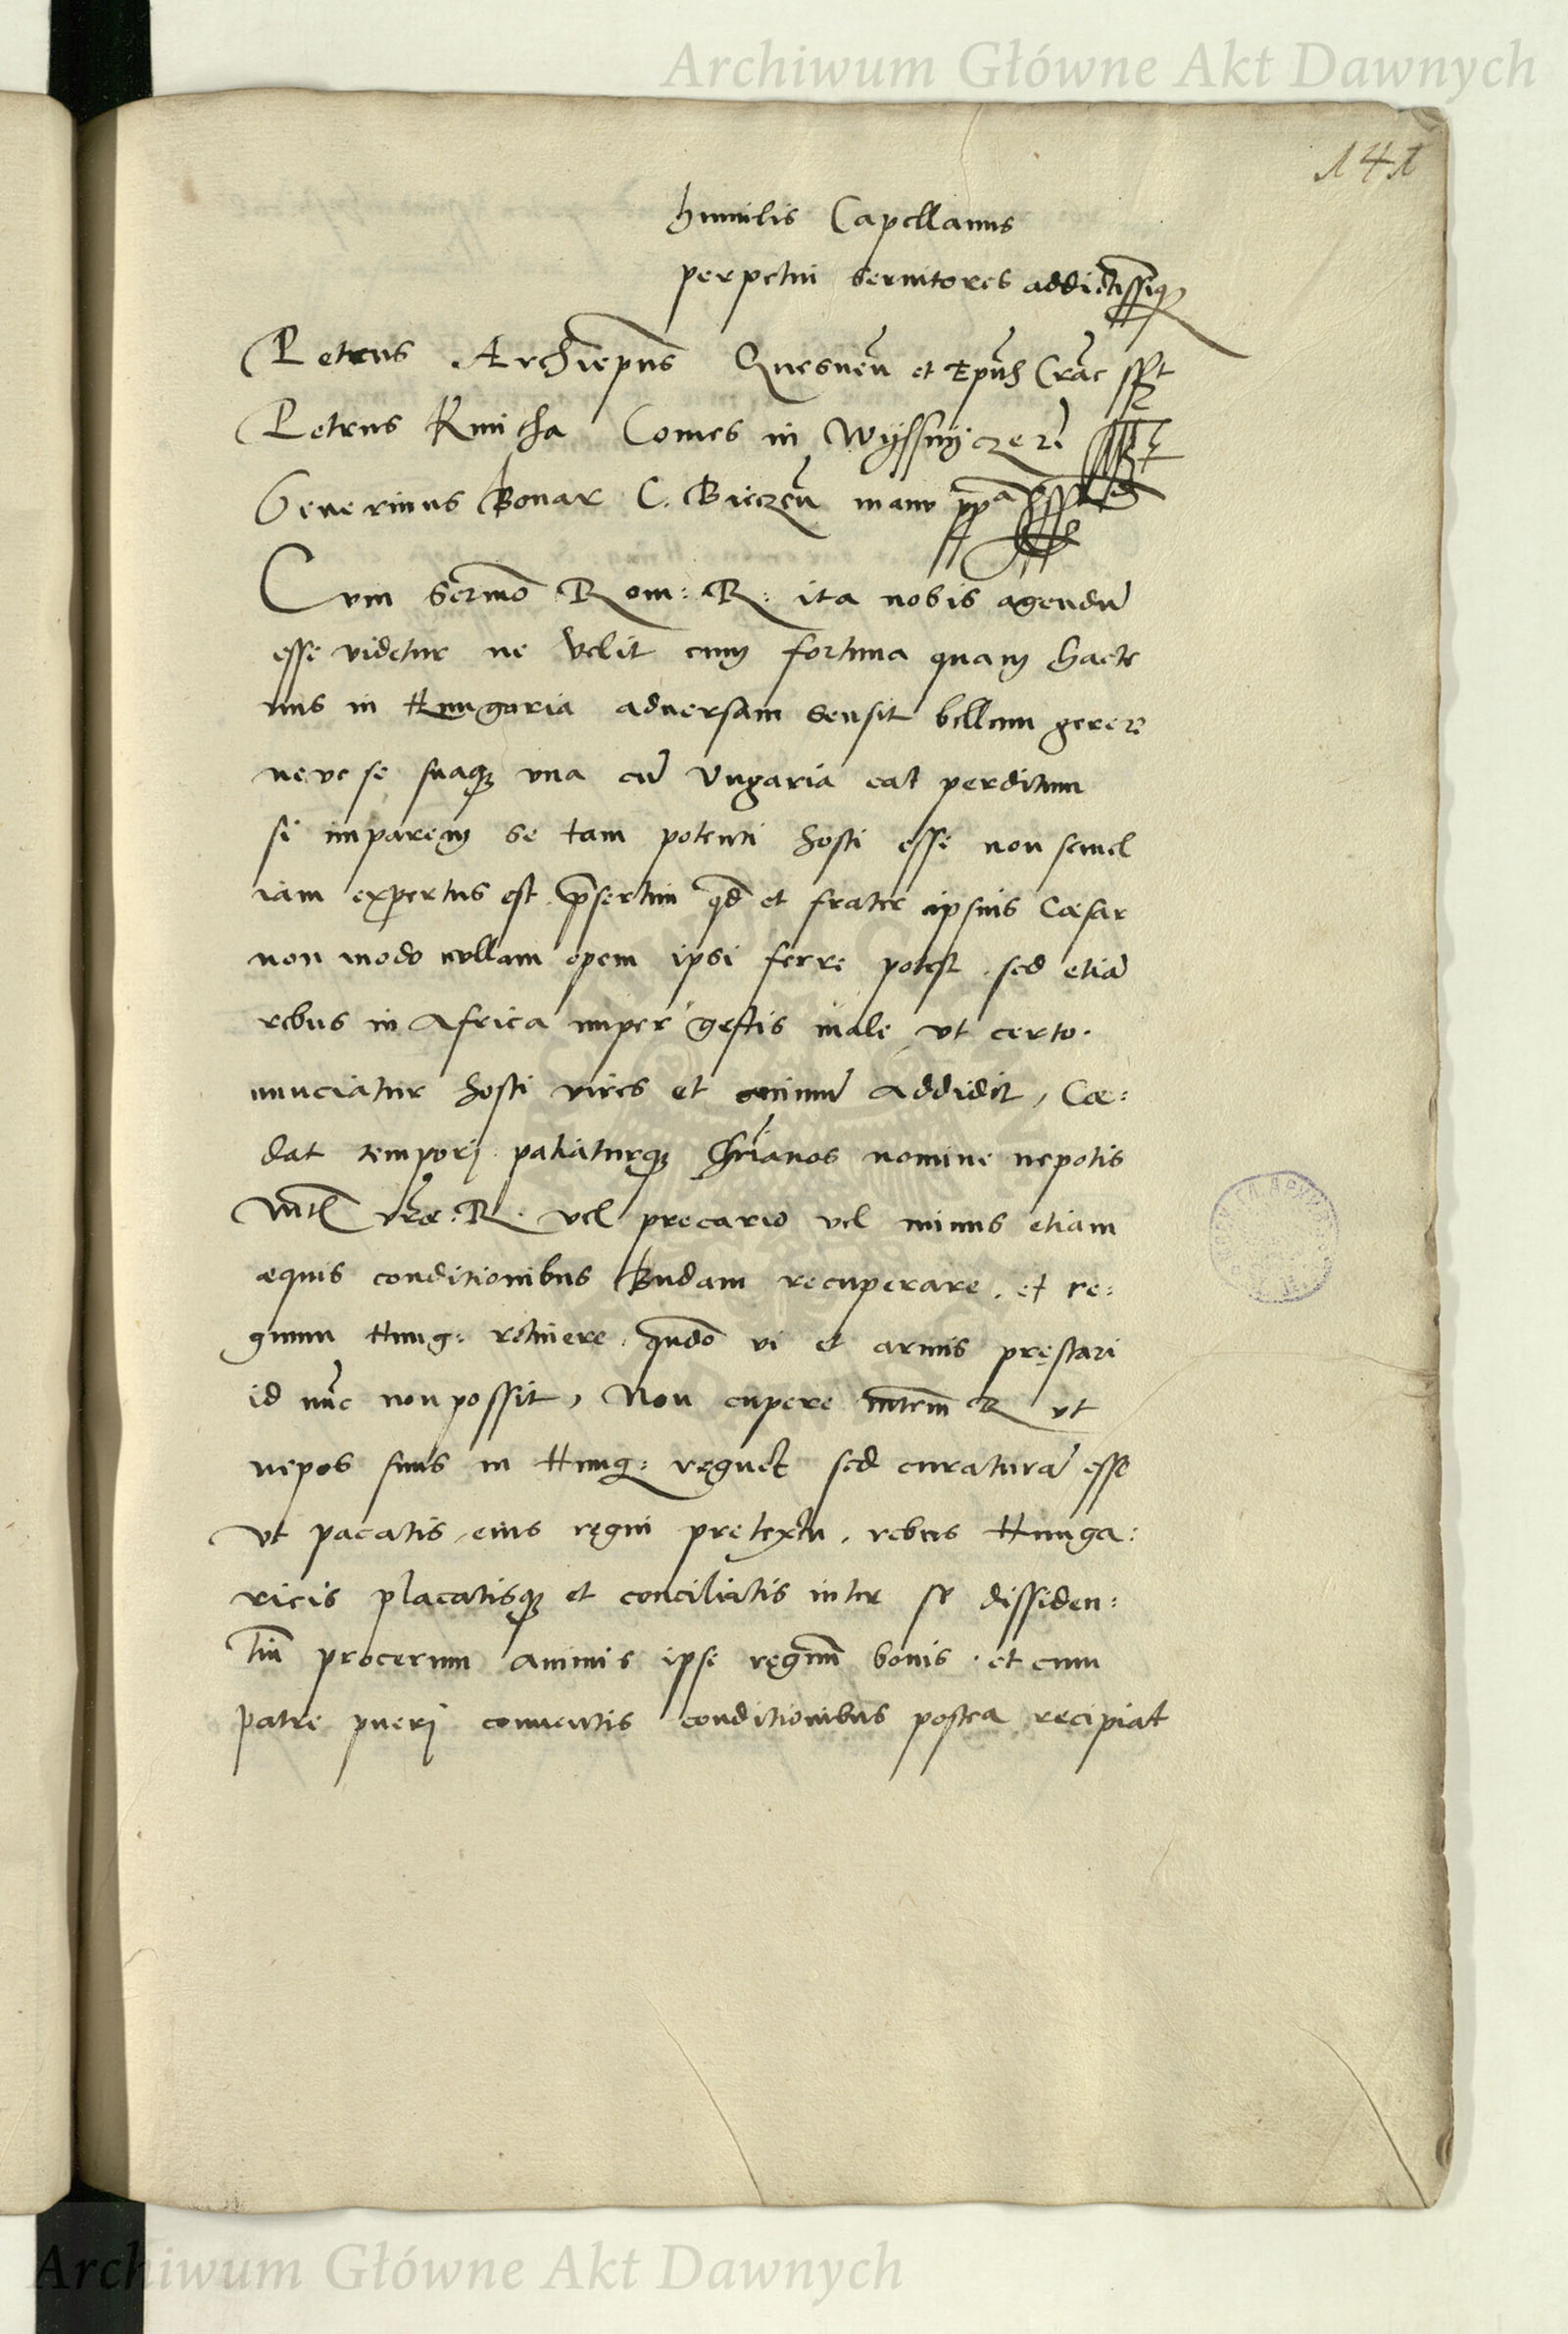 Archiwum Główne Akt Dawnych
141
humilis Capellanus
perpetui servitores addictissimiq₃
Petrus Archiep̄us Gnesneñ et Ep̄us Crac̄ sst
Petrus Kmitha Comes in Wyssnicze
Severinus Bonar C. Bieczeñ manu pp̄a sst
Cum sermo Rom: R: ita nobis agendū
esse videtur ne velit cum fortuna quam hacte
nus in Hungaria adversam sensit bellum gerere
neve se suaq₃ una cū Ungaria eat perditum
si imparem se tam potenti hosti esse non semel
iam expertus est p̄sertim qd̄ et frater ipsius Cæsar
non modo nullam opem ipsi ferre potest sed etiā
rebus in Africa nuper gestis male ut certo
nunciatur hosti vires et animū addidit, Cæ:
dat tempori patiaturq₃ Chr̄ianos nomine nepotis
Mtis vr̄æ R. vel precario vel minus etiam
æquis conditionibus Budam recuperare. et re:
gnum Hung: retinere qn̄do vi et armis pręstari
id nūc non possit, Non cupere mtem̄ R ut
nepos suus in Hung: regnet sed curaturā esse
ut pacatis eius regni pretextu, rebus Hunga:
ricis placatisq₃ et conciliatis inter se dissiden:
tiū procerum animis ipse regnum bonis et cum
patre pueri conventis conditionibus postea recipiat
Archiwum Główne Akt Dawnych